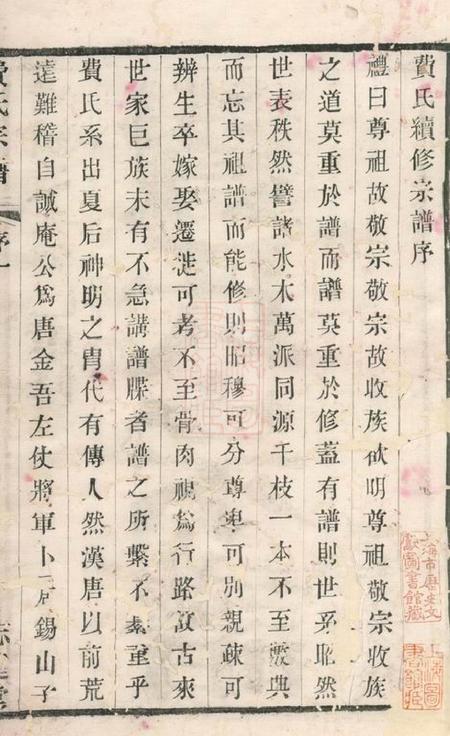 費氏續修宗譜序
禮曰尊祖故敬宗敬宗故收族欲明尊祖敬宗收族
之道莫重於譜而譜莫重於修蓋有譜則世系昭然
世表秩然譬諸水木萬派同源千枝一本不至數典
而忘其祖譜而能修則昭穆可分尊卑可別親疎可
辨生卒嫁娶遷徙可考不至骨肉視爲行路故古來
世家巨族未有不急講譜牒者譜之所繫不綦重乎
費氏系出夏后神明之胄代有傳人然漢唐以前荒
遠難稽自誠庵公爲唐金吾左仗將軍卜居錫山子
費氏宗譜 序一
上海市歷史文
獻圖書館藏
上海圖
書館藏